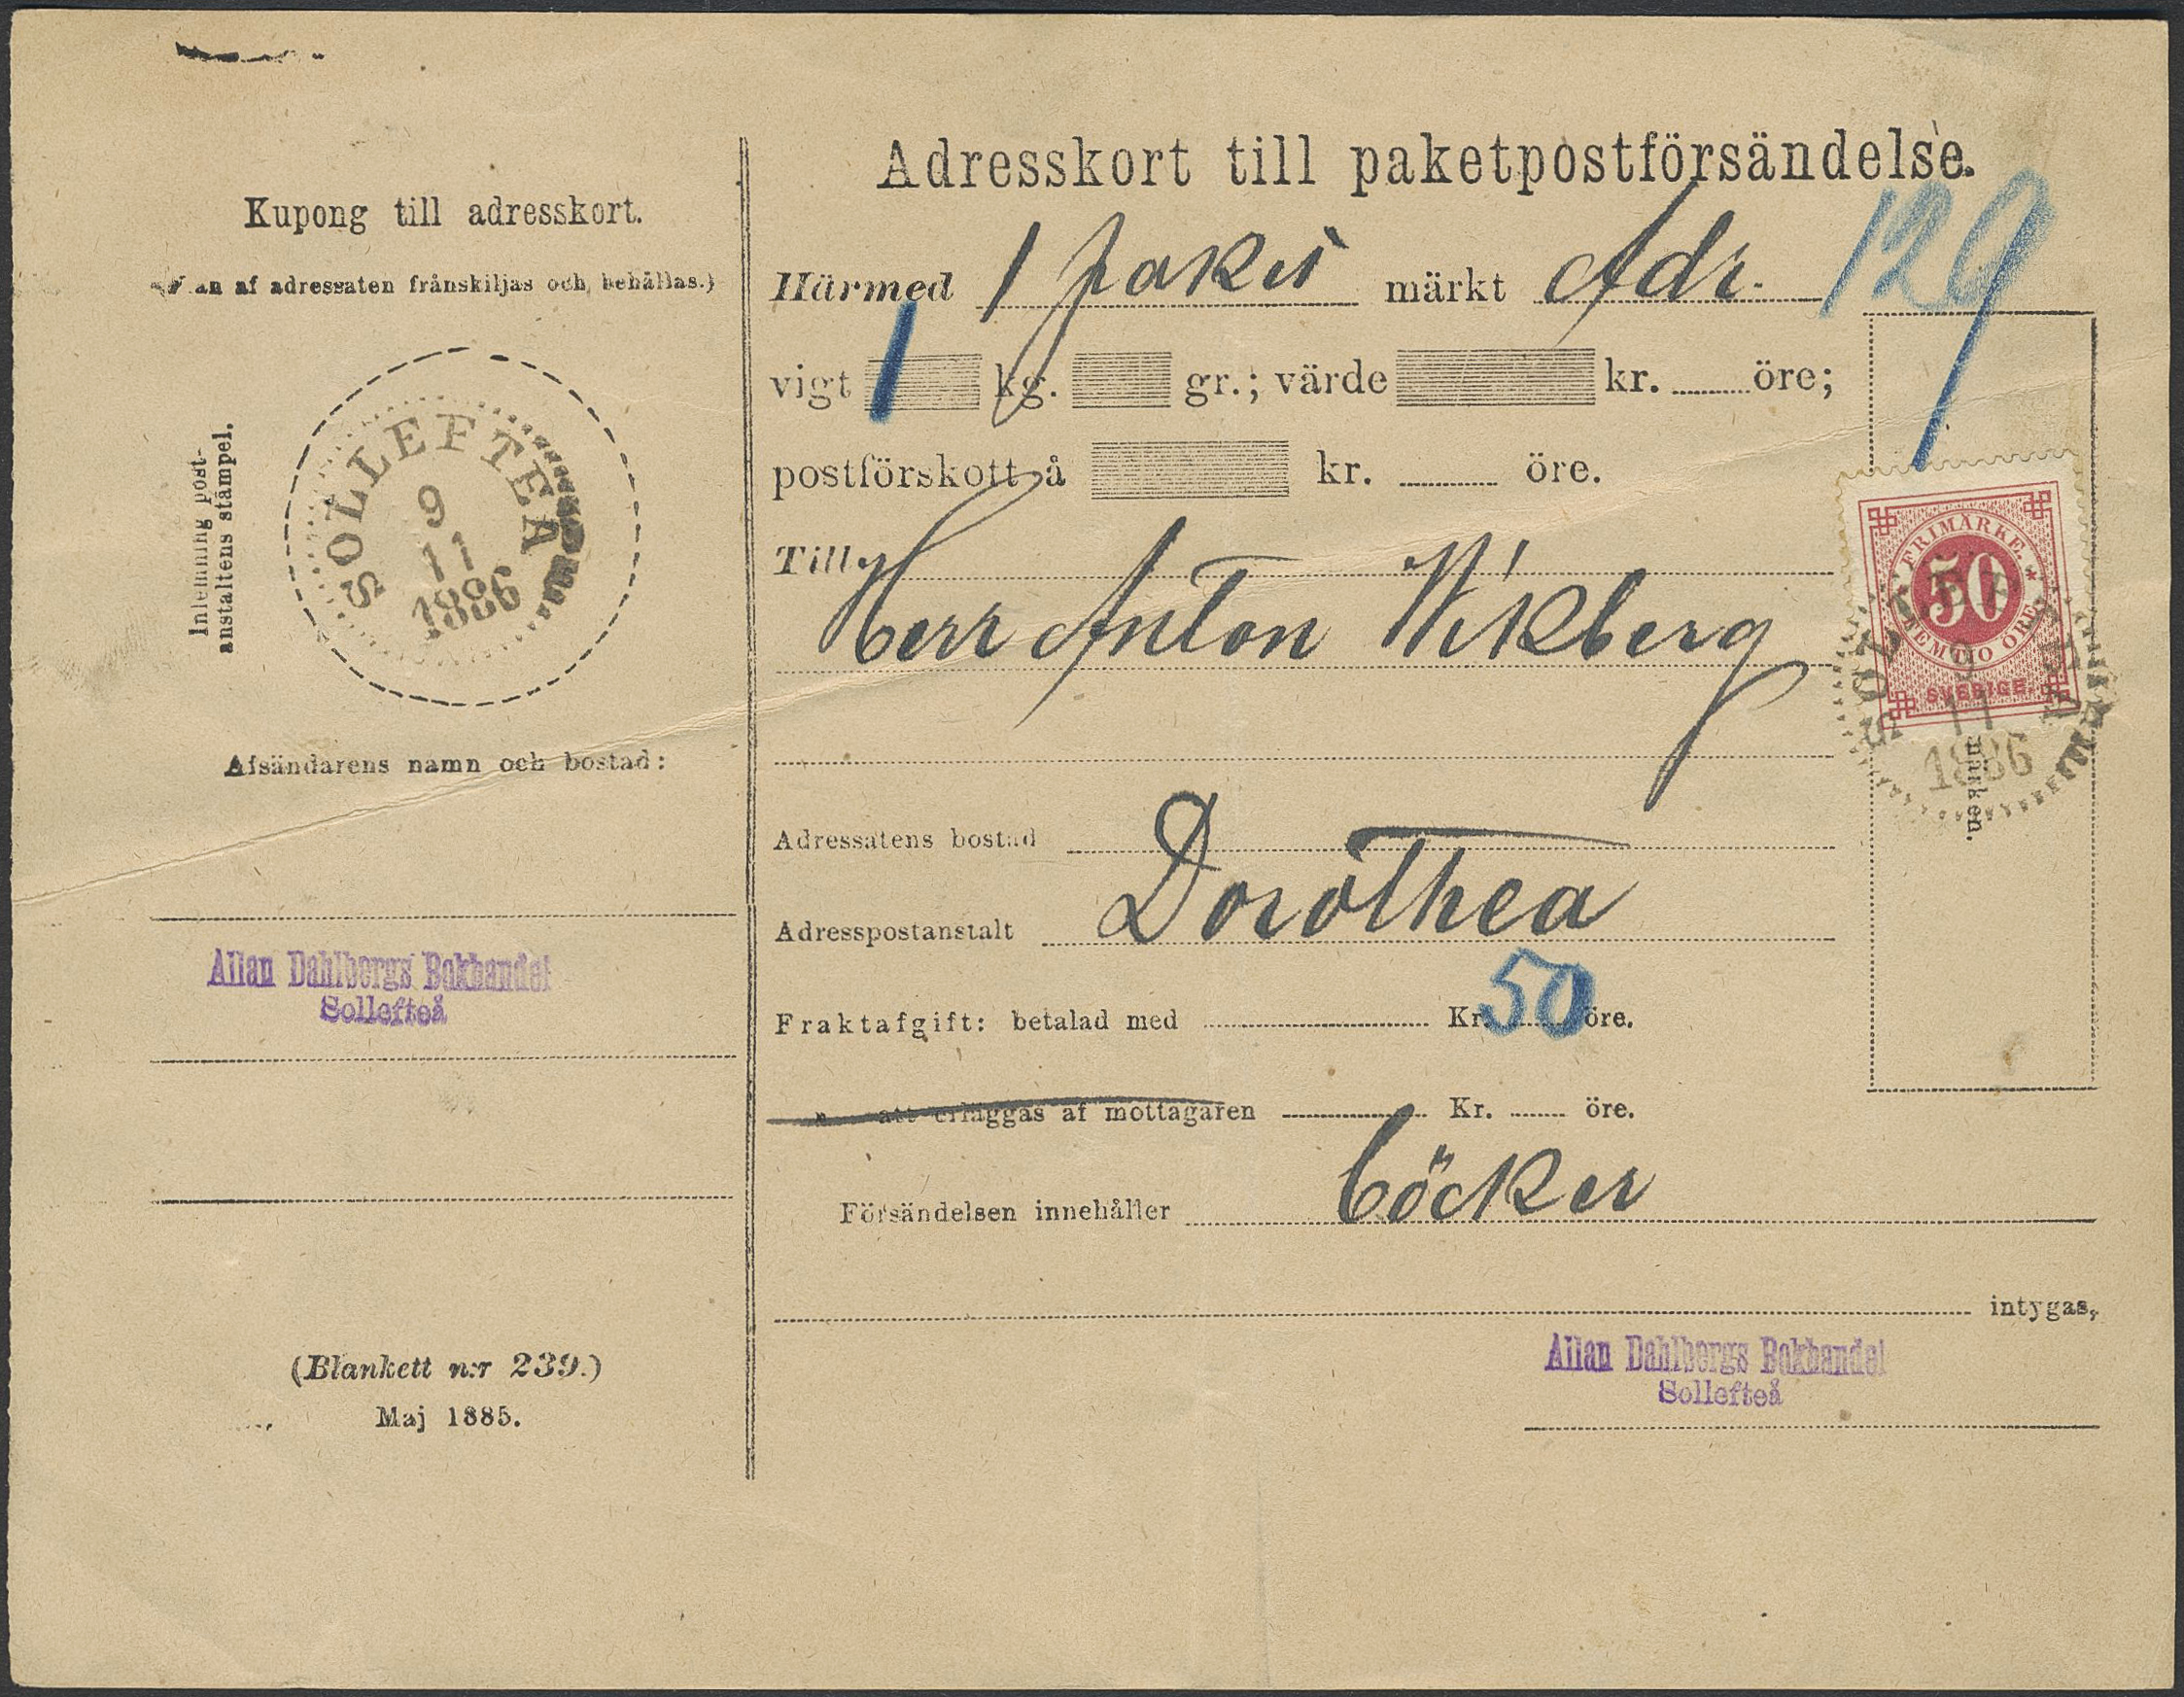 Kupong till adresskort.
(Kan af adressaten frånskiljas och behållas.)
Inlemning post-
anstaltens stämpel.
SOLLEFTEÅ
9
11
1886
Afsändarens namn och bostad:
Allan Dahlbergs Bokhandel
Sollefteå
(Blankett n:r 239.)
Maj 1885.
Adresskort till paketpostförsändelse.
Härmed 1 paket märkt Adr. 129
vigt 1 kg. gr.; värde kr. öre;
postförskott å kr. öre.
Till
Herr Anton Wikberg
Adressatens bostad
Adresspostanstalt Dorothea
Fraktafgift: betalad med Kr. 50 öre.
" att erläggas af mottagaren Kr. öre.
Försändelsen innehåller böcker
intygas,
Allan Dahlbergs Bokhandel
Sollefteå
FRIMÄRKE.
50
FEMTIO ÖRE
SVERIGE.
SOLLEFTEÅ
9
11
1886
märken.